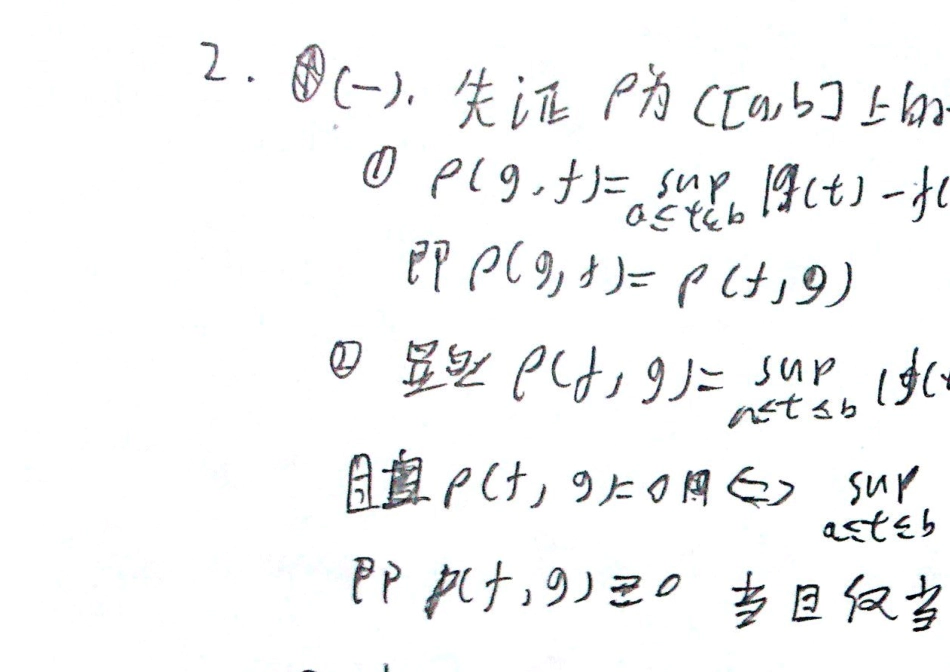 2. (一). 先证 ρ为 C[a,b] 上的
① ρ(g,f)= sup a≤t≤b |g(t) -f(
即 ρ(g,f)= ρ(f,g)
② 显然 ρ(f,g)= sup a≤t≤b |f(
且 ρ(f,g)=0 ⇔ sup a≤t≤b
即 ρ(f,g)=0 当且仅当